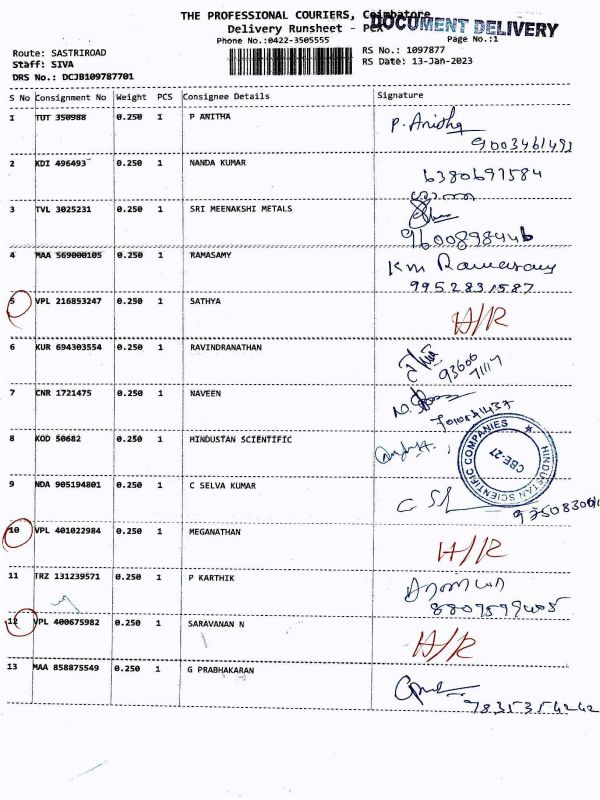 THE PROFESSIONAL COURIERS, Coimbatore
DOCUMENT DELIVERY
Delivery Runsheet - PCX
Phone No.:0422-3505555 Page No.:1
Route: SASTRIROAD RS No.: 1097877
Staff: SIVA RS Date: 13-Jan-2023
DRS No.: DCJB109787701
S No Consignment No Weight PCS Consignee Details Signature
1 TUT 350988 0.250 1 P ANITHA P. Anitha
9003461493
2 KDI 496493 0.250 1 NANDA KUMAR 6380697584
3 TVL 3025231 0.250 1 SRI MEENAKSHI METALS
9600898446
4 MAA 569000105 0.250 1 RAMASAMY Km Ramasamy
9952831587
5 VPL 216853247 0.250 1 SATHYA H/R
6 KUR 694303554 0.250 1 RAVINDRANATHAN
93606
7117
7 CNR 1721475 0.250 1 NAVEEN
8 KOD 50682 0.250 1 HINDUSTAN SCIENTIFIC
HINDUSTAN SCIENTIFIC COMPANIES
CBE-27
9 NDA 905194801 0.250 1 C SELVA KUMAR
10 VPL 401022984 0.250 1 MEGANATHAN H/R
11 TRZ 131239571 0.250 1 P KARTHIK
12 VPL 400675982 0.250 1 SARAVANAN N H/R
13 MAA 858875549 0.250 1 G PRABHAKARAN